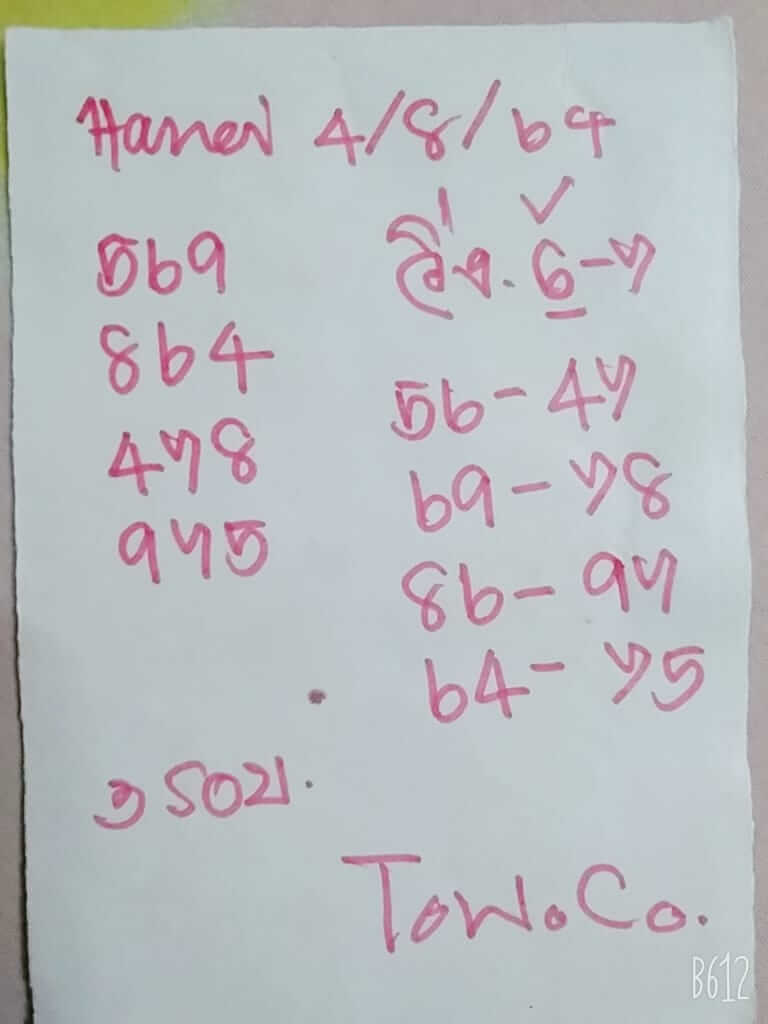 Hanoi 4/8/64
569
864
478
975
วิ่ง. 6-7 ✓
56-47
69-78
86-97
64-75
3 รอบ.
Tow.Co.
B612